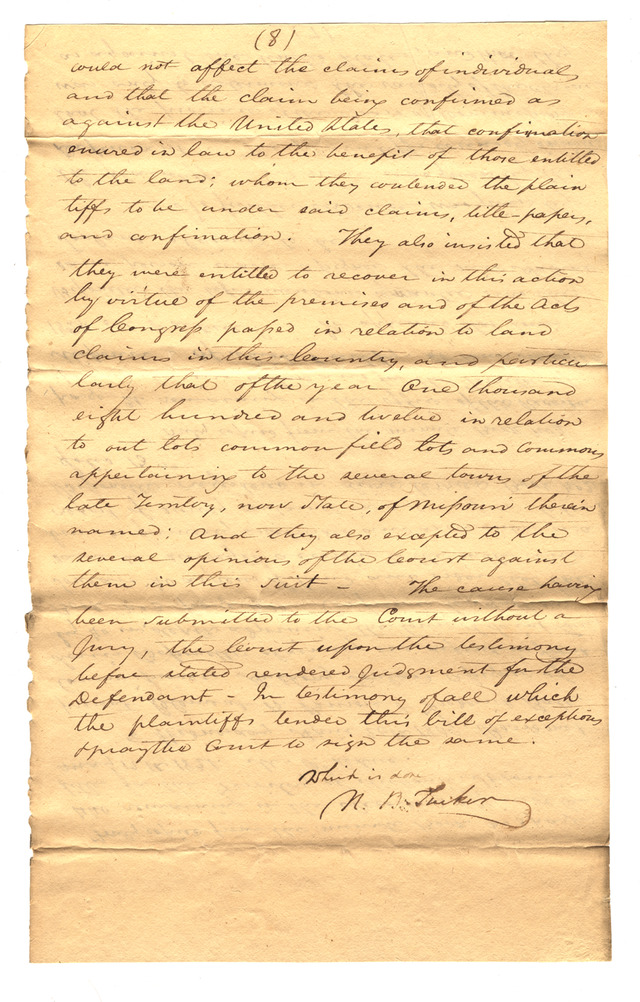 (8)
could not affect the claims of individuals
and that the claim being confirmed as
against the United States, that confirmation
enured in law to the benefit of those entitled
to the land; whom they contended the plain
tiffs to be under said claims, title-papers,
and confirmation. They also insisted that
they were entitled to recover in this action
by virtue of the premises and of the Acts
of Congress passed in relation to land
claims in this Country, and particu
larly that of the year One thousand
eight hundred and twelve in relation
to out lots common field lots and commons
appertaining to the several towns of the
late Territory, now State, of Missouri therein
named; And they also excepted to the
several opinions of the Court against
them in this suit - The cause having
been submitted to the Court without a
Jury, the Court upon the testimony
before stated rendered Judgment for the
Defendant - In testimony of all which
the plaintiffs tender this bill of exceptions
& pray the Court to sign the same.
Which is done
N. B. Tucker